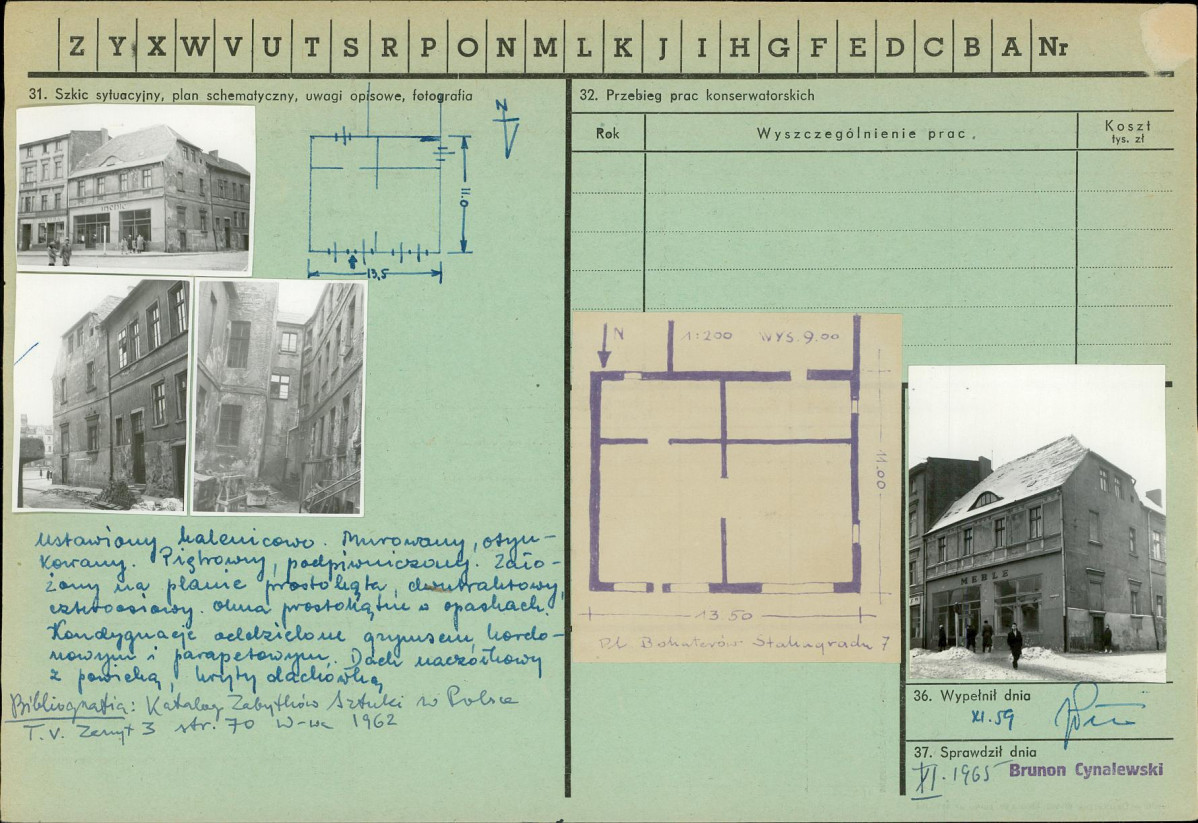 Z Y X W V U T S R P O N M L K J I H G F E D C B A Nr
31. Szkic sytuacyjny, plan schematyczny, uwagi opisowe, fotografia
N
11.0
13,5
MEBLE
ustawiony kalenicowo. Murowany, otyn-
kowany. Piętrowy, podpiwniczony. Zało-
żony na planie prostokąta, dwutraktowy,
czteroosiowy. okna prostokątne w opaskach.
Kondygnacje oddzielone gzymsem kordo-
nowym i parapetowym. Dach naczółkowy
z powieką, kryty dachówką
Bibliografia: Katalog Zabytków Sztuki w Polsce
T. V. Zeszyt 3 str. 70 W-wa 1962
32. Przebieg prac konserwatorskich
Rok
Wyszczególnienie prac
Koszt
tys. zł
N 1:200 WYS. 9.00
11.00
13.50
Pl. Bohaterów Stalingradu 7
MEBLE
36. Wypełnił dnia
XI. 59
37. Sprawdził dnia
XI. 1965 Brunon Cynalewski